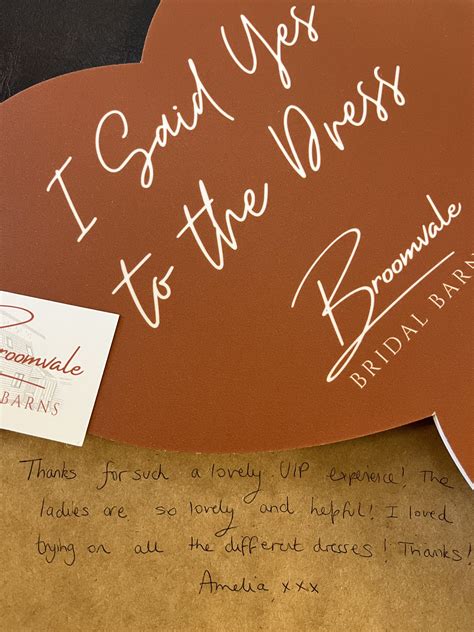 I Said Yes
to the Dress
Broomvale
BRIDAL BARNS
Broomvale
BARNS
Thanks for such a lovely VIP experience! The
ladies are so lovely and helpful! I loved
trying on all the different dresses! Thanks!
Amelia xxx